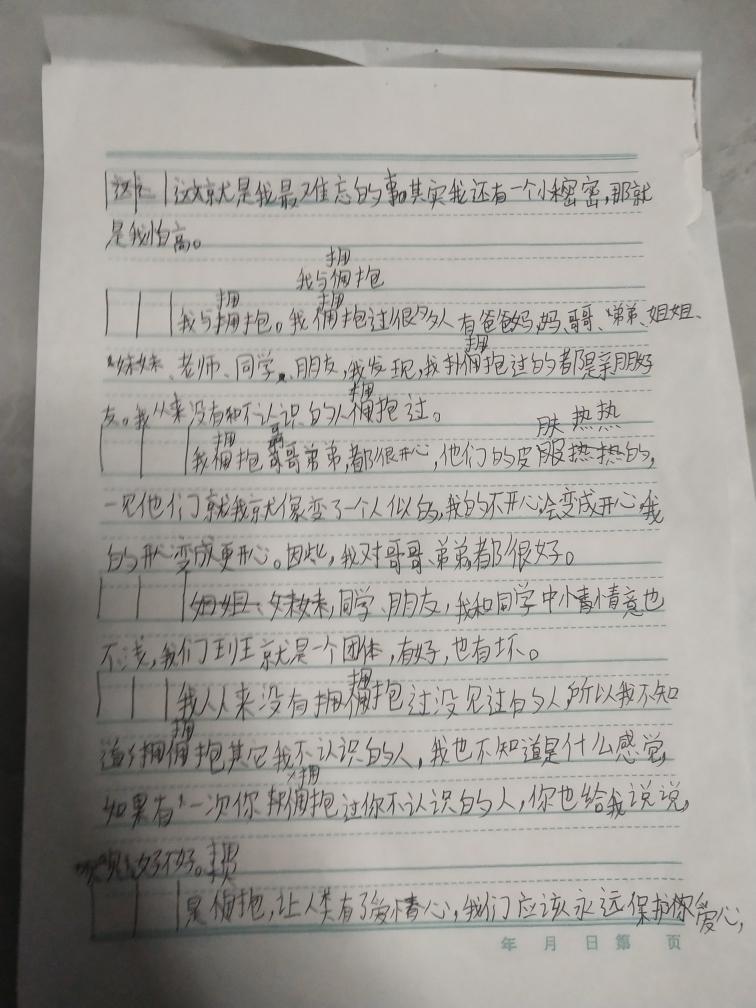 这就是我最难忘的事。其实我还有一个小秘密,那就
是我怕高。
拥
我与佣抱
拥 拥
我与拥抱。我佣抱过很多人有爸爸妈妈、哥哥、弟弟、姐姐、
拥
妹妹、老师、同学、朋友,我发现,我佣抱过的都是亲朋好
拥
友。我从来没有和不认识的人佣抱过。
拥 哥 肤热热
我佣抱哥哥弟弟,都很开心,他们的皮服热热的,
一见他们就我就像变了一个人似的,我的不开心会变成开心我
的开心变成更开心。因此,我对哥哥、弟弟都很好。
姐姐、妹妹,同学、朋友,我和同学中情情意也
不浅,我们班就是一个团体,有好,也有坏。
拥
我从来没有拥佣抱过没见过的人,所以我不知
拥
道拥佣抱其它我不认识的人,我也不知道是什么感觉,
拥
如果有一次你佣抱过你不认识的人,你也给我说说,
好不好。拥
是佣抱,让人类有了爱情心,我们应该永远保护你爱心,
年 月 日 第 页